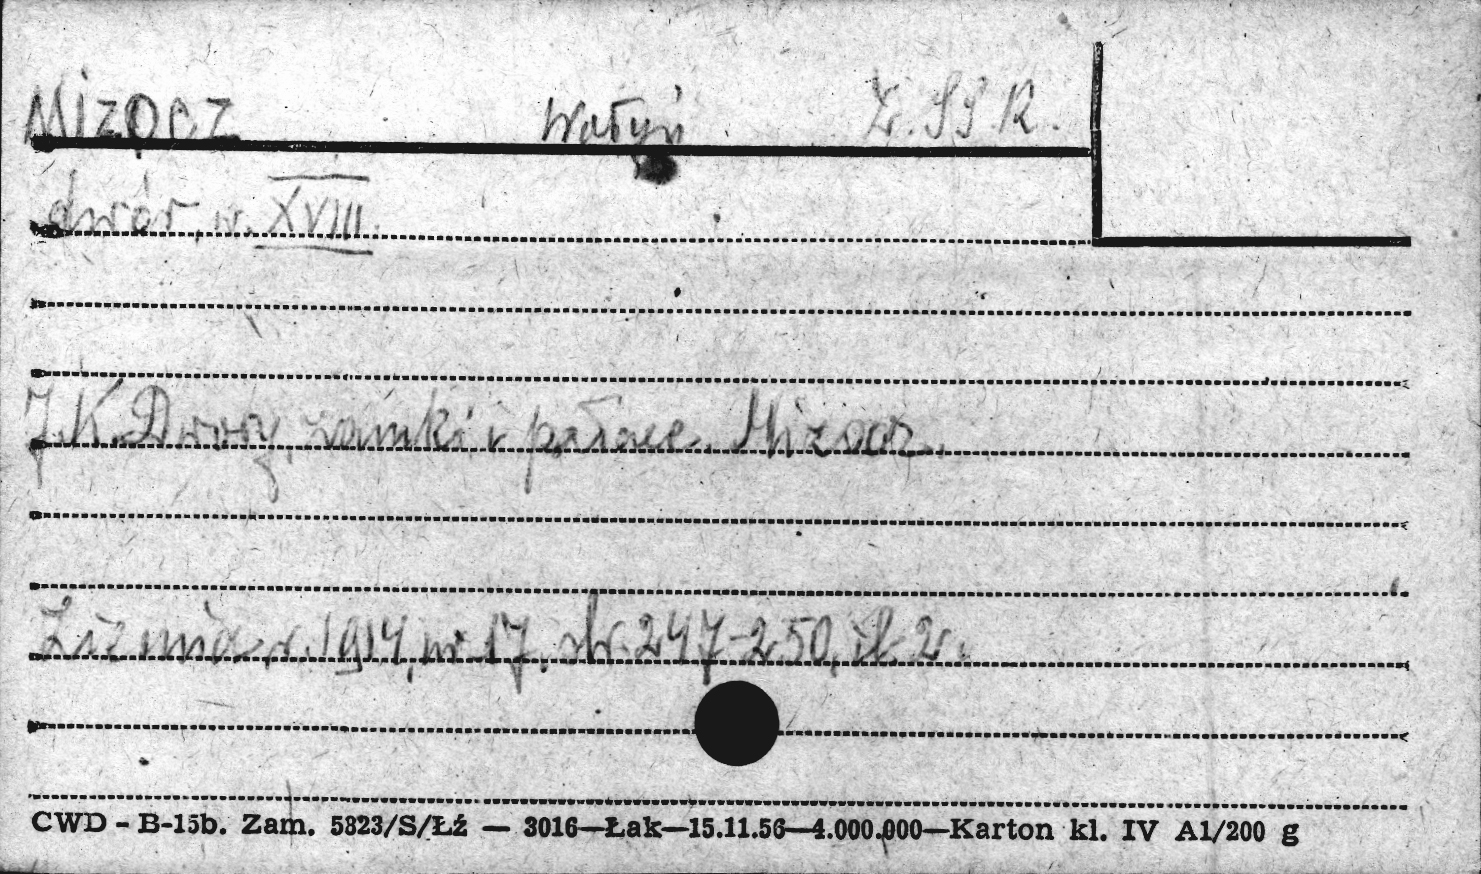 MIZOCZ Wołyń Z.SSR.
dwór, w. XVIII.
J.K. Dwory, zamki i pałace. Mizocz.
Lizmia r. 1914, nr 17, str. 247-250, il. 2.
CWD - B-15b. Zam. 5823/S/Łź — 3016—Łak—15.11.56—4.000.000—Karton kl. IV A1/200 g